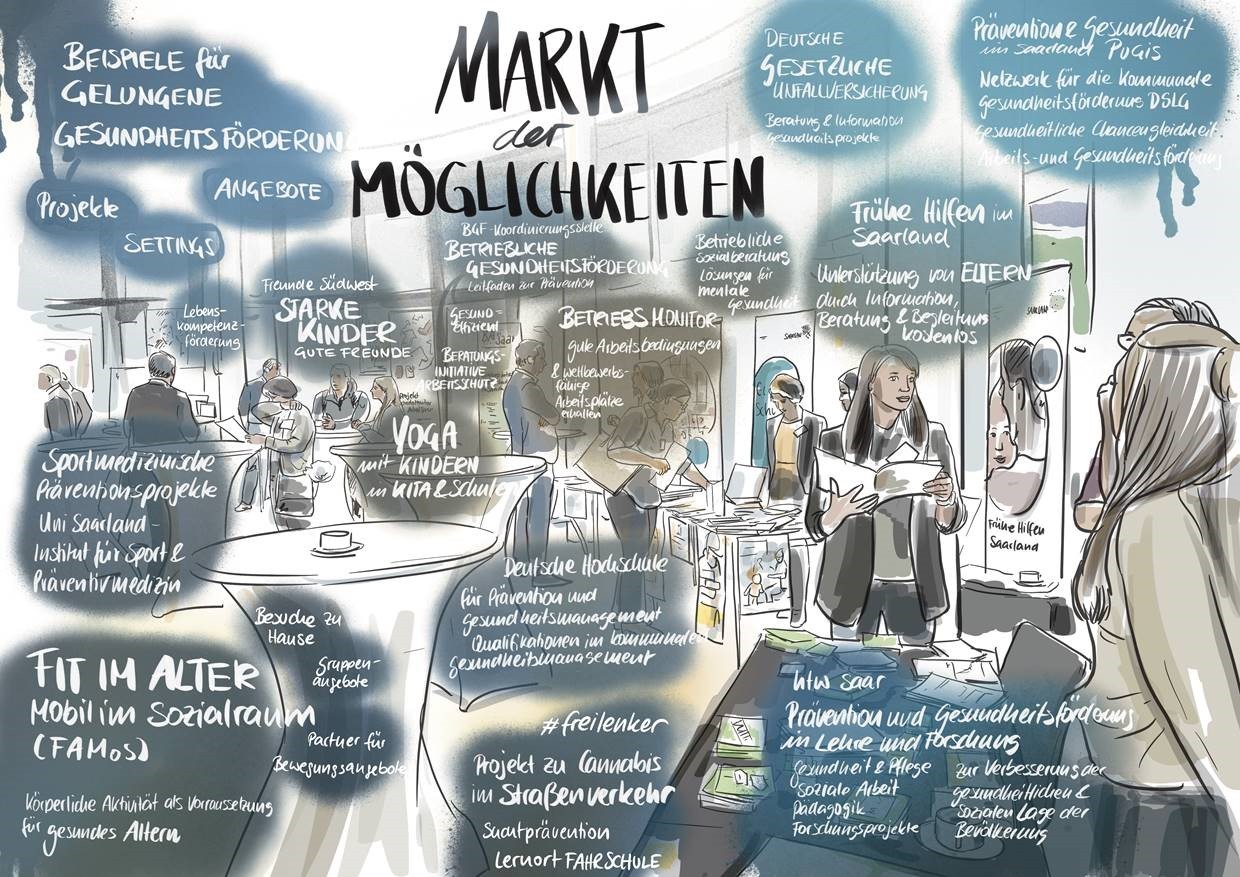 MARKT
der
MÖGLICHKEITEN
BEISPIELE für
GELUNGENE
GESUNDHEITSFÖRDERUNG
Projekte
ANGEBOTE
SETTINGS
DEUTSCHE
GESETZLICHE
UNFALLVERSICHERUNG
Beratung & Information
Gesundheitsprojekte
Prävention & Gesundheit
im Saarland PuGiS
Netzwerk für die Kommunale
Gesundheitsförderung DSLG
Gesundheitliche Chancengleichheit
Arbeits- und Gesundheitsförderung
Lebens-
kompetenz-
förderung
Freunde Südwest
STARKE
KINDER
GUTE FREUNDE
BGF-Koordinierungsstelle
BETRIEBLICHE
GESUNDHEITSFÖRDERUNG
Leitfaden zur Prävention
Betriebliche
Sozialberatung
Lösungen für
mentale
Gesundheit
Frühe Hilfen im
Saarland
Unterstützung von ELTERN
durch Information,
Beratung & Begleitung
kostenlos
Gesund-
Effizient
BERATUNGS-
INITIATIVE
ARBEITSSCHUTZ
BETRIEBSMONITOR
gute Arbeitsbedingungen
& wettbewerbs-
fähige
Arbeitsplätze
erhalten
Projekt
YOGA
mit KINDERN
in KITA & Schule
Frühe Hilfen
Saarland
Sportmedizinische
Präventionsprojekte
Uni Saarland -
Institut für Sport &
Präventivmedizin
Deutsche Hochschule
für Prävention und
Gesundheitsmanagement
Qualifikationen im kommunalen
Gesundheitsmanagement
FIT IM ALTER
Mobil im Sozialraum
(FAMoS)
Körperliche Aktivität als Vorraussetzung
für gesundes Altern
Besuche zu
Hause
Gruppen-
angebote
Partner für
Bewegungsangebote
#freilenker
Projekt zu Cannabis
im Straßenverkehr
Suchtprävention
Lernort FAHRSCHULE
htw saar
Prävention und Gesundheitsförderung
in Lehre und Forschung
Gesundheit & Pflege
Soziale Arbeit
Pädagogik
Forschungsprojekte
zur Verbesserung der
gesundheitlichen &
Sozialen Lage der
Bevölkerung